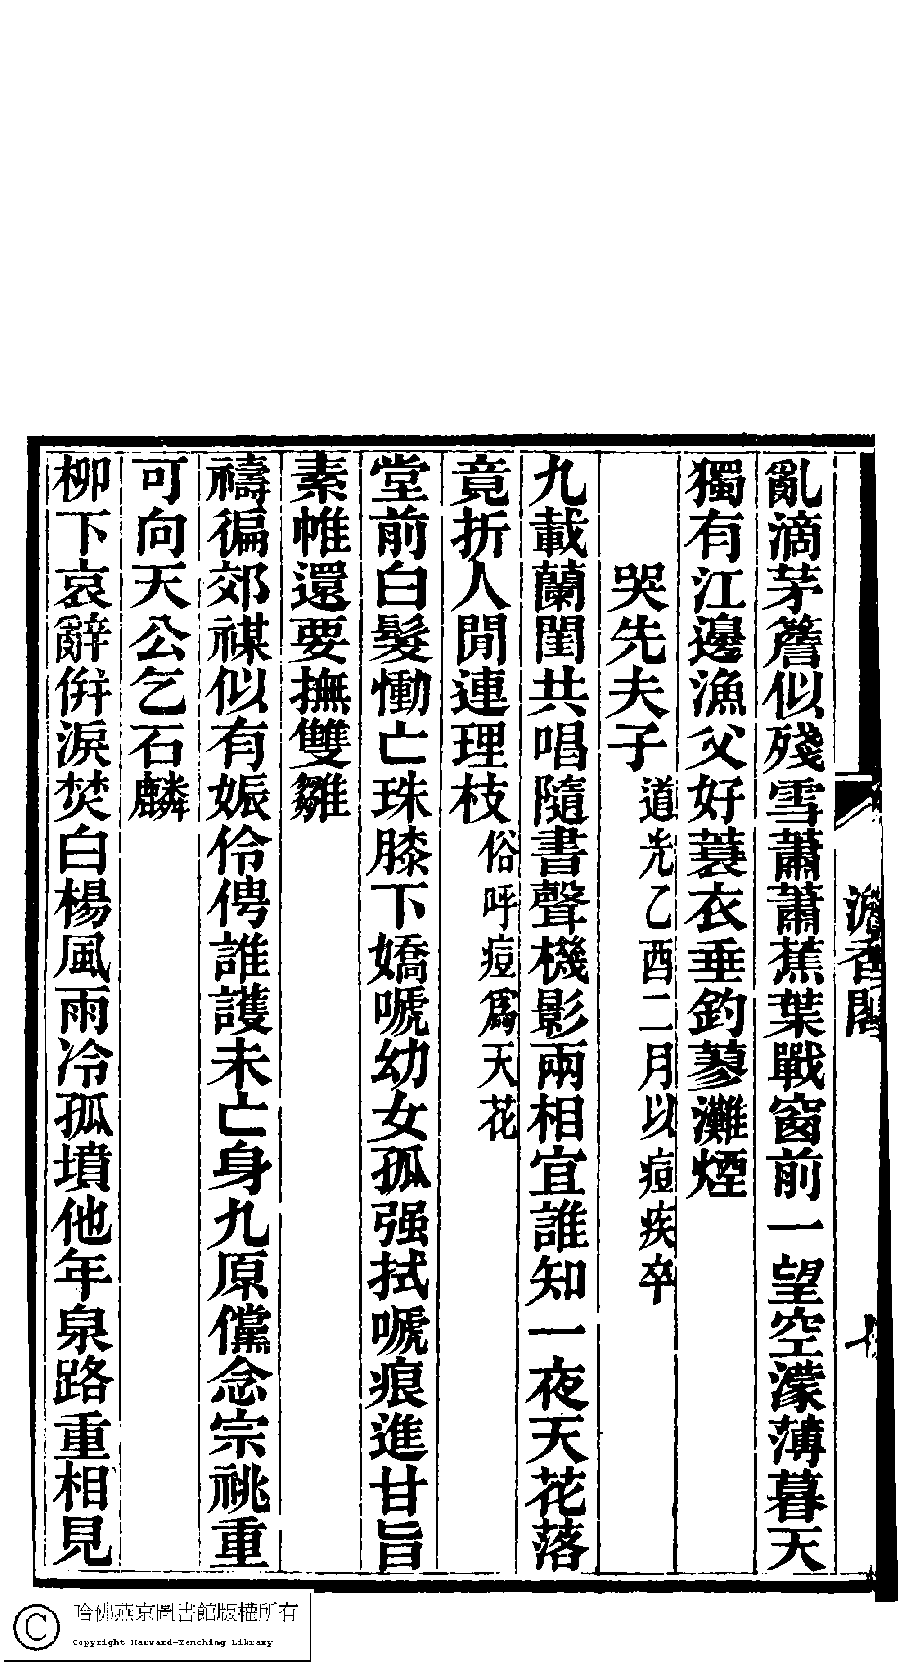 亂滴茅簷似殘雪蕭蕭蕉葉戰窗前一望空濛薄暮天
獨有江邊漁父好蓑衣垂釣蓼灘煙
哭先夫子道光乙酉二月以痘疾卒
九載蘭閨共唱隨書聲機影兩相宜誰知一夜天花落
竟折人間連理枝俗呼痘爲天花
堂前白髮慟亡珠膝下嬌嗁幼女孤强拭嗁痕進甘旨
素帷還要撫雙雛
禱徧郊禖似有娠伶俜誰護未亡身九原儻念宗祧重
可向天公乞石麟
柳下哀辭倂淚焚白楊風雨冷孤墳他年泉路重相見
澹香閣
哈佛燕京圖書館版權所有
Copyright Harvard-Yenching Library